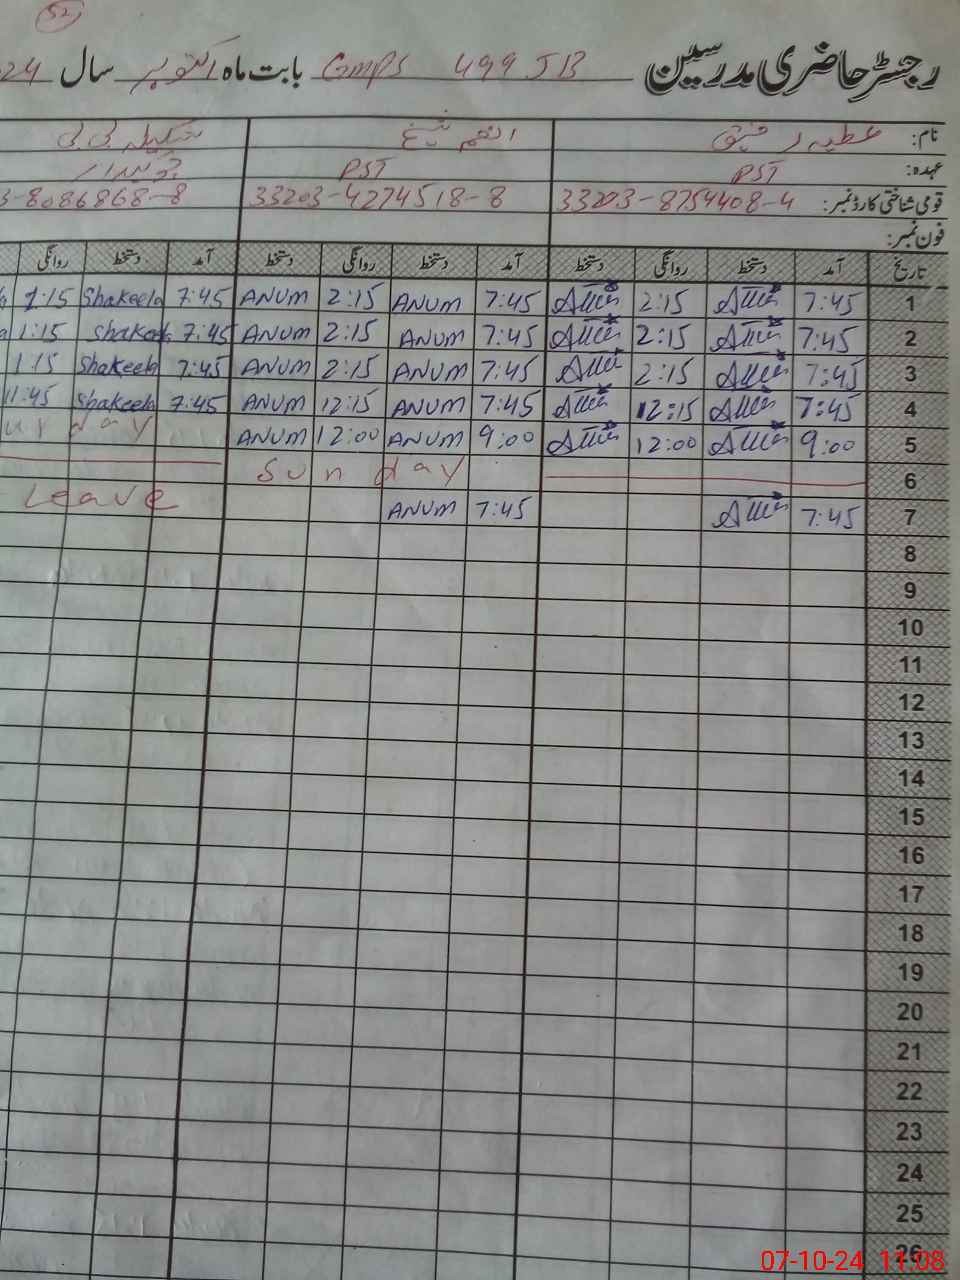 52
رجسٹر حاضری مدرسین GMPS 499 JB بابت ماہ اکتوبر سال 24
نام: عطیہ رفیق انعم شیخ شکیلہ بی بی
عہدہ: PST PST چوکیدار
قومی شناختی کارڈ نمبر: 33203-8754408-4 33203-4274518-8 3-8086868-8
فون نمبر:
تاریخ آمد دستخط روانگی دستخط آمد دستخط روانگی دستخط آمد دستخط روانگی
1 7:45 2:15 7:45 ANUM 2:15 ANUM 7:45 Shakeela 1:15
2 7:45 2:15 7:45 ANUM 2:15 ANUM 7:45 Shakeela 1:15
3 7:45 2:15 7:45 ANUM 2:15 ANUM 7:45 Shakeela 1:15
4 7:45 12:15 7:45 ANUM 12:15 ANUM 7:45 Shakeela 11:45
5 9:00 12:00 9:00 ANUM 12:00 ANUM ur day
6 Sunday
7 7:45 7:45 ANUM Leave
8
9
10
11
12
13
14
15
16
17
18
19
20
21
22
23
24
25
26
07-10-24 11:08